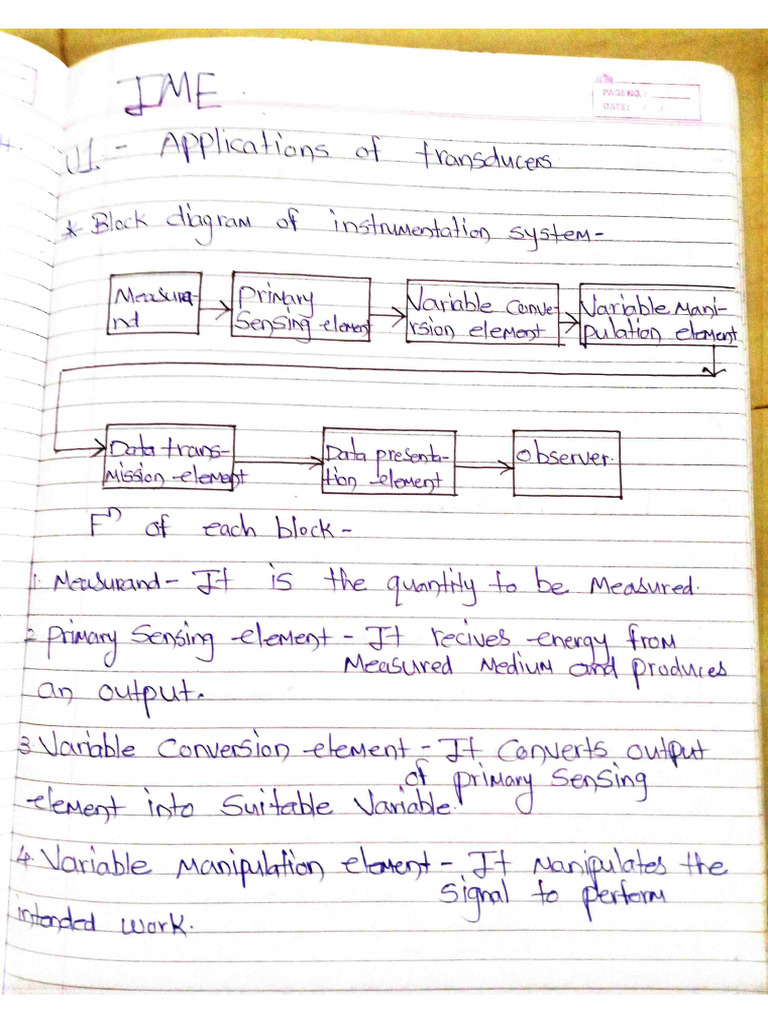 IME.
PAGE NO.:
DATE: / /
U1. - Applications of transducers
* Block diagram of instrumentation system -
Measura-
nd
Primary
Sensing element
Variable Conve-
rsion element
Variable Mani-
pulation element
Data trans-
mission element
Data presenta-
tion element
Observer.
Fⁿ of each block -
1. Measurand - It is the quantity to be measured.
2. Primary Sensing element - It recives energy from
Measured Medium and produces
an output.
3. Variable Conversion element - It Converts output
of primary Sensing
element into Suitable Variable.
4. Variable Manipulation element - It Manipulates the
signal to perform
intended work.